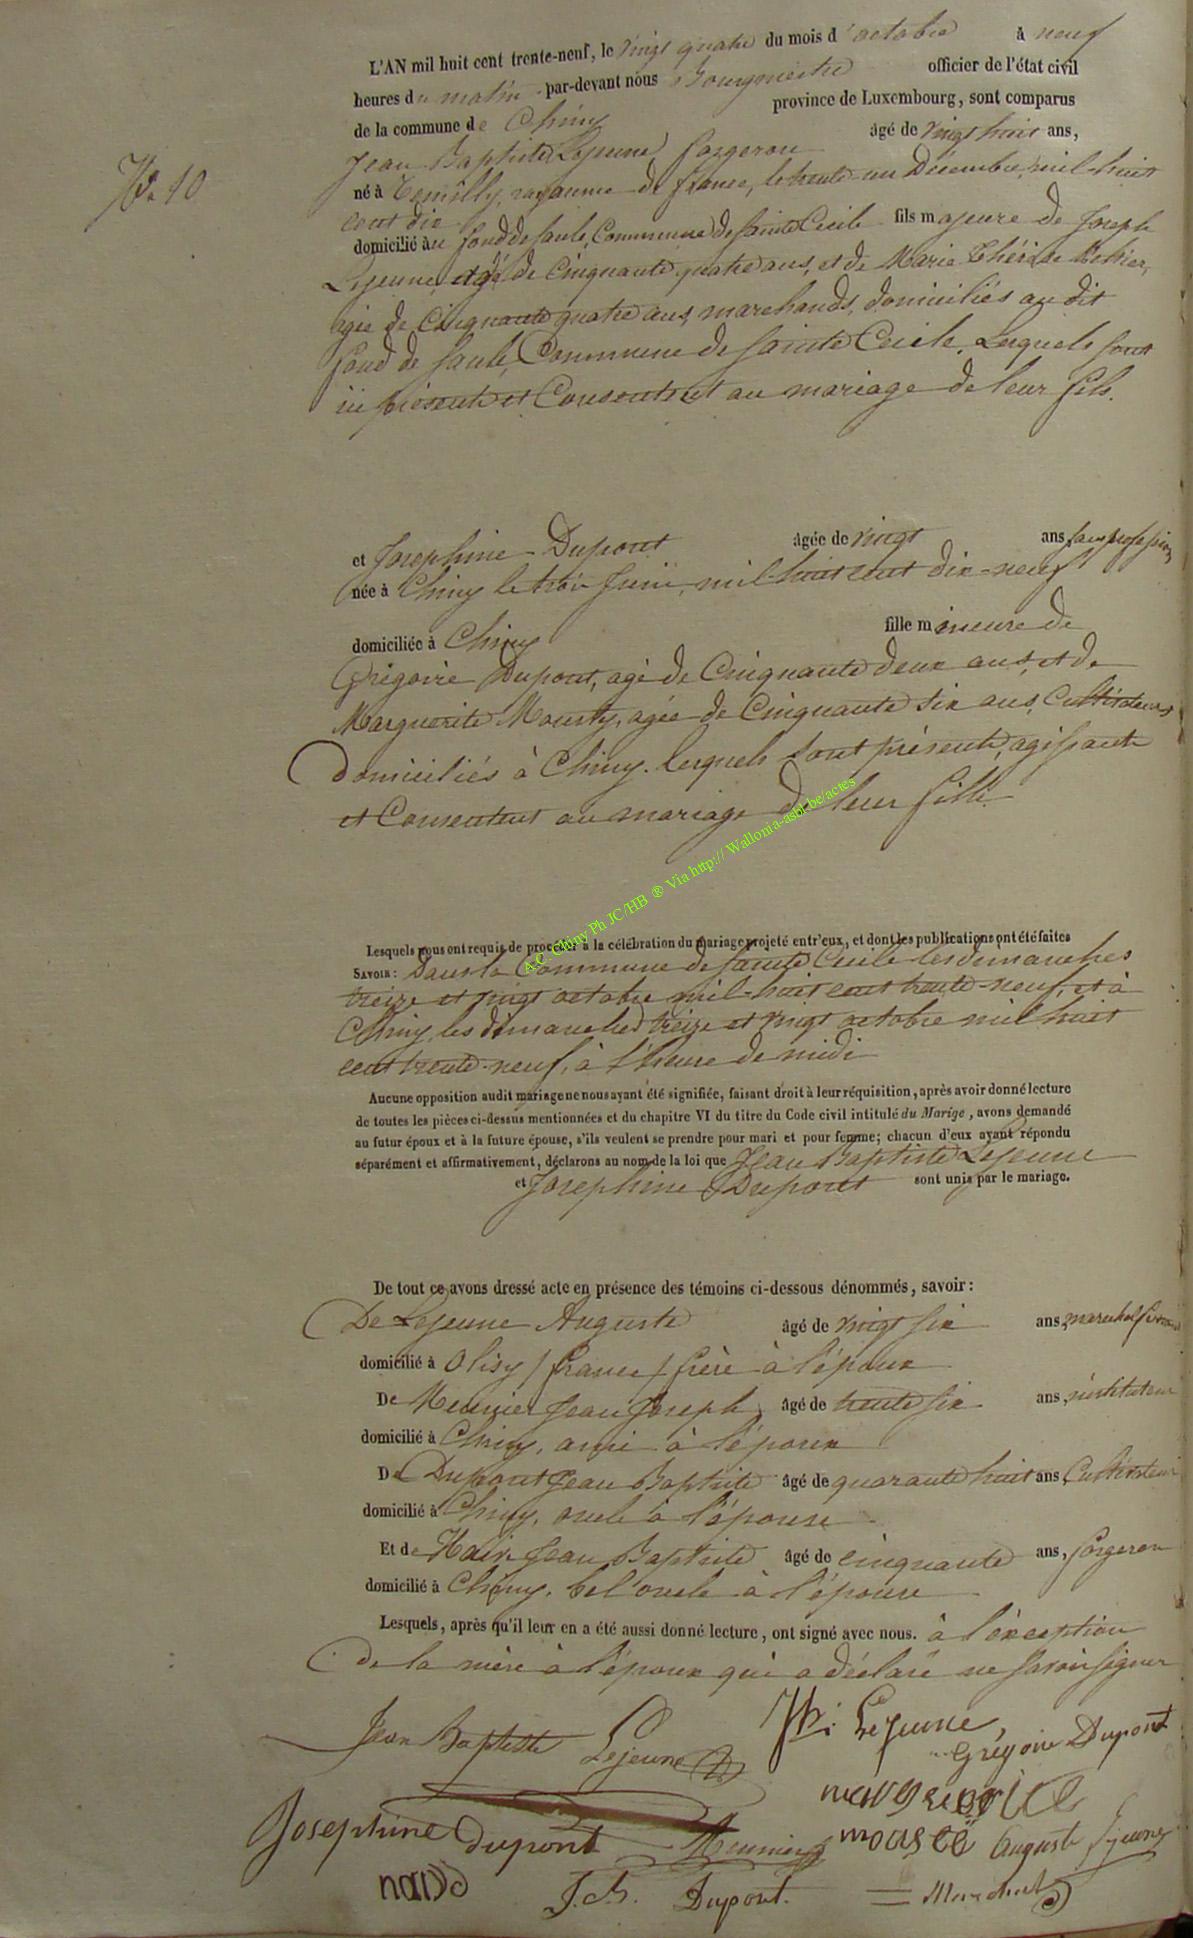 N° 10
L'AN mil huit cent trente-neuf, le vingt quatre du mois d'octobre à neuf
heures du matin par-devant nous Bourgmestre officier de l'état civil
de la commune de Chiny province de Luxembourg, sont comparus
Jean Baptiste Lejeune, forgeron âgé de vingt huit ans,
né à royaume de france, le trente-un Décembre, mil-huit
cent dix
domicilié au fond de faule, Commune de Sainte Cecile fils majeure de Joseph
Lejeune, agé de Cinquante quatre ans, et de Marie Thérèse
agée de Cinquante quatre ans, marchands, domiciliés au dit
fond de faule, Commune de Sainte Cecile. Lesquels sont
ici présents et Consentent au mariage de leur fils.
et Josephine Dupont âgée de vingt ans, sans profession
née à Chiny le trois Juin, mil-huit cent dix-neuf
domiciliée à Chiny fille mineure de
Grégoire Dupont, agé de Cinquante deux ans, et de
Marguerite Mousty, agée de Cinquante six ans, Cultivateurs
Domiciliés à Chiny. lesquels sont présents, agissants
et Consentent au mariage de leur fille
A.C. Chiny Ph JC/HB ® Via http:// Wallonia-asbl.be/actes
Lesquels nous ont requis de procéder à la célébration du mariage projeté entr'eux, et dont les publications ont été faites
SAVOIR : Dans la Commune de Sainte Cecile les dimanches
treize et vingt octobre mil-huit cent trente-neuf, et à
Chiny, les dimanches treize et vingt octobre mil huit
cent trente-neuf, à l'heure de midi
Aucune opposition audit mariage ne nous ayant été signifiée, faisant droit à leur réquisition, après avoir donné lecture
de toutes les pièces ci-dessus mentionnées et du chapitre VI du titre du Code civil intitulé du Marige, avons demandé
au futur époux et à la future épouse, s'ils veulent se prendre pour mari et pour femme; chacun d'eux ayant répondu
séparément et affirmativement, déclarons au nom de la loi que Jean Baptiste Lejeune
et Josephine Dupont sont unis par le mariage.
De tout ce avons dressé acte en présence des témoins ci-dessous dénommés, savoir :
De Lejeune Auguste âgé de vingt six ans, marechal ferrant
domicilié à Olisy / france / frère à l'époux
De Meunier Jean Joseph, âgé de trente six ans, instituteur
domicilié à Chiny, ami à l'époux
De Dupont Jean Baptiste âgé de quarante huit ans, Cultivateur
domicilié à Chiny, oncle à l'épouse
Et de Jean Baptiste âgé de cinquante ans, forgeron
domicilié à Chiny, bel oncle à l'épouse
Lesquels, après qu'il leur en a été aussi donné lecture, ont signé avec nous. à l'exception
de la mère à l'époux qui a déclaré ne savoir signer
Jean Baptiste Lejeune Lejeune,
Grégoire Dupont
Josephine Dupont Meunier marguerite
Auguste Lejeune
J. B. Dupont.